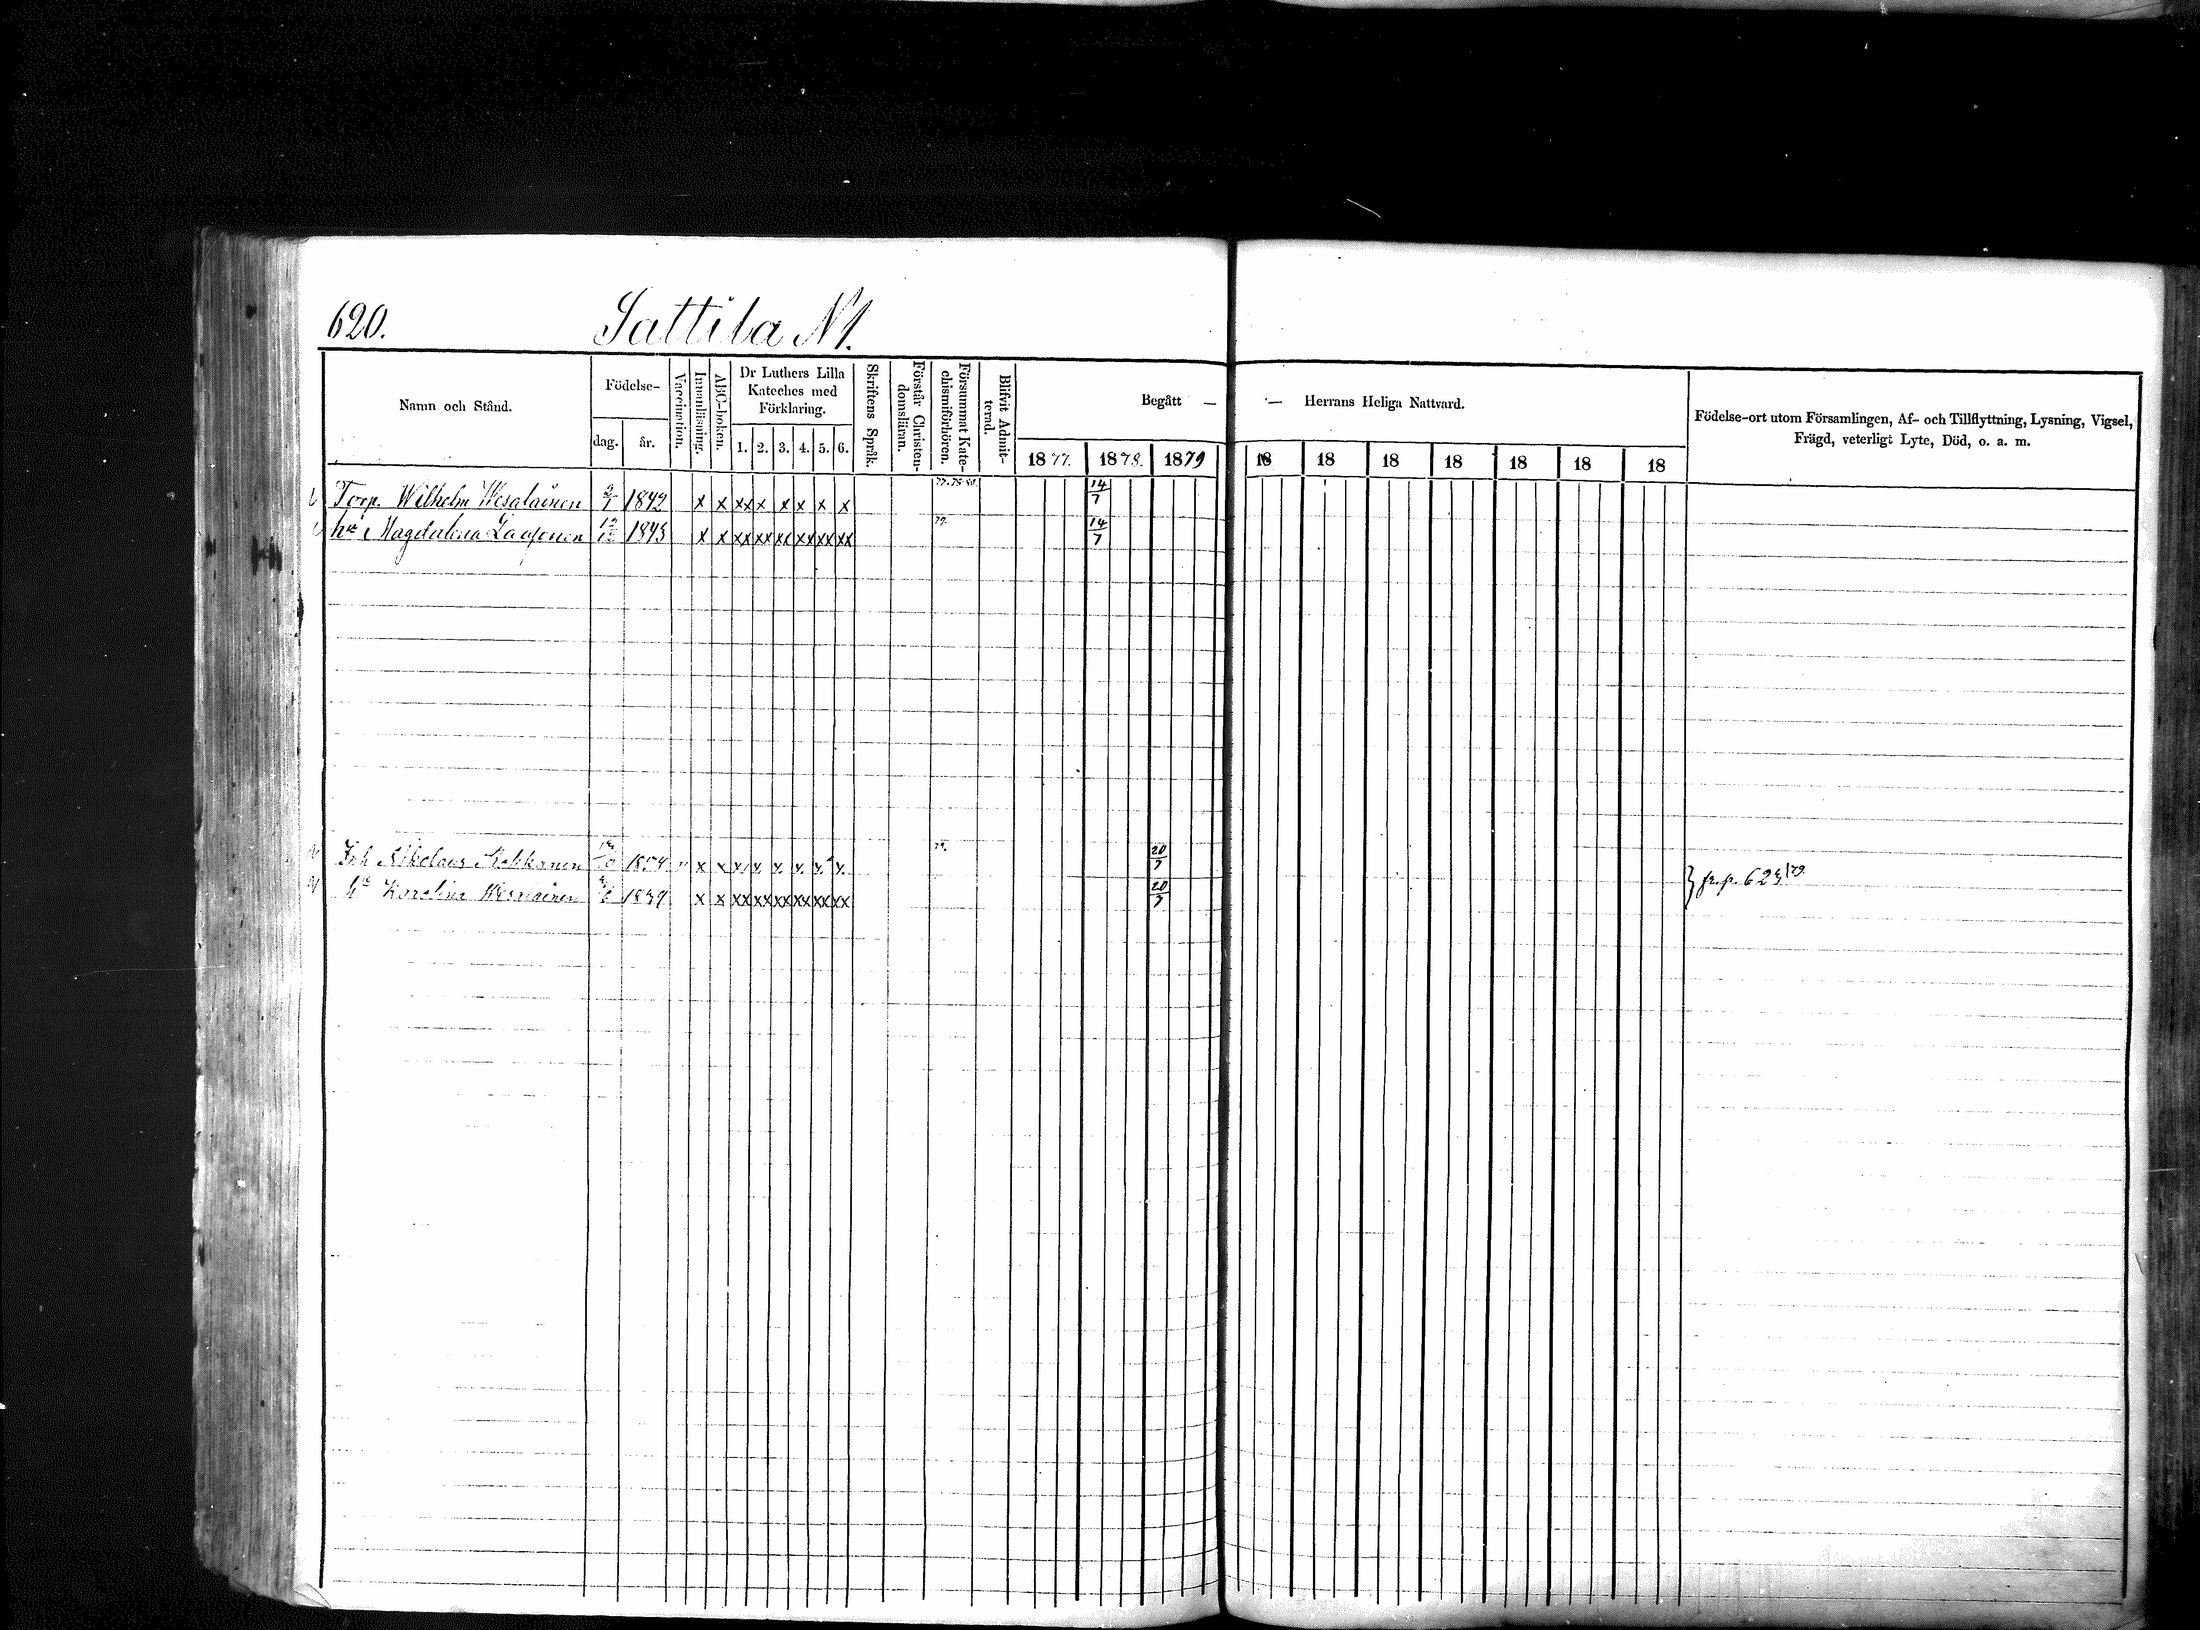 620. Sattila N 1.
Namn och Stånd.
Födelse-
dag. år.
Vaccination.
Innanläsning.
ABC-boken.
Dr Luthers Lilla
Kateches med
Förklaring.
1. 2. 3. 4. 5. 6.
Skriftens Språk.
Förstår Christen-
domsläran.
Försummat Kate-
chismiförhören.
Blifvit Admit-
terad.
Begått — — Herrans Heliga Nattvard.
1877. 1878. 1879 18 18 18 18 18 18 18
Födelse-ort utom Församlingen, Af- och Tillflyttning, Lysning, Vigsel,
Frägd, veterligt Lyte, Död, o. a. m.
77. 78. 80.
Torp. Wilhelm Wesalainen 2/7 1842 x x xx x x x x x 14/7
hu Magdalena Laaponen 1843 x x xx xx xx xx xx xx 79. 14/7
Inh Nikolaus 1854 v x x x x x x x x 79. 20/7
hu Karolina Wesalainen 1839 x x xx xx xx xx xx xx 20/7
} fr. p. 623/79.